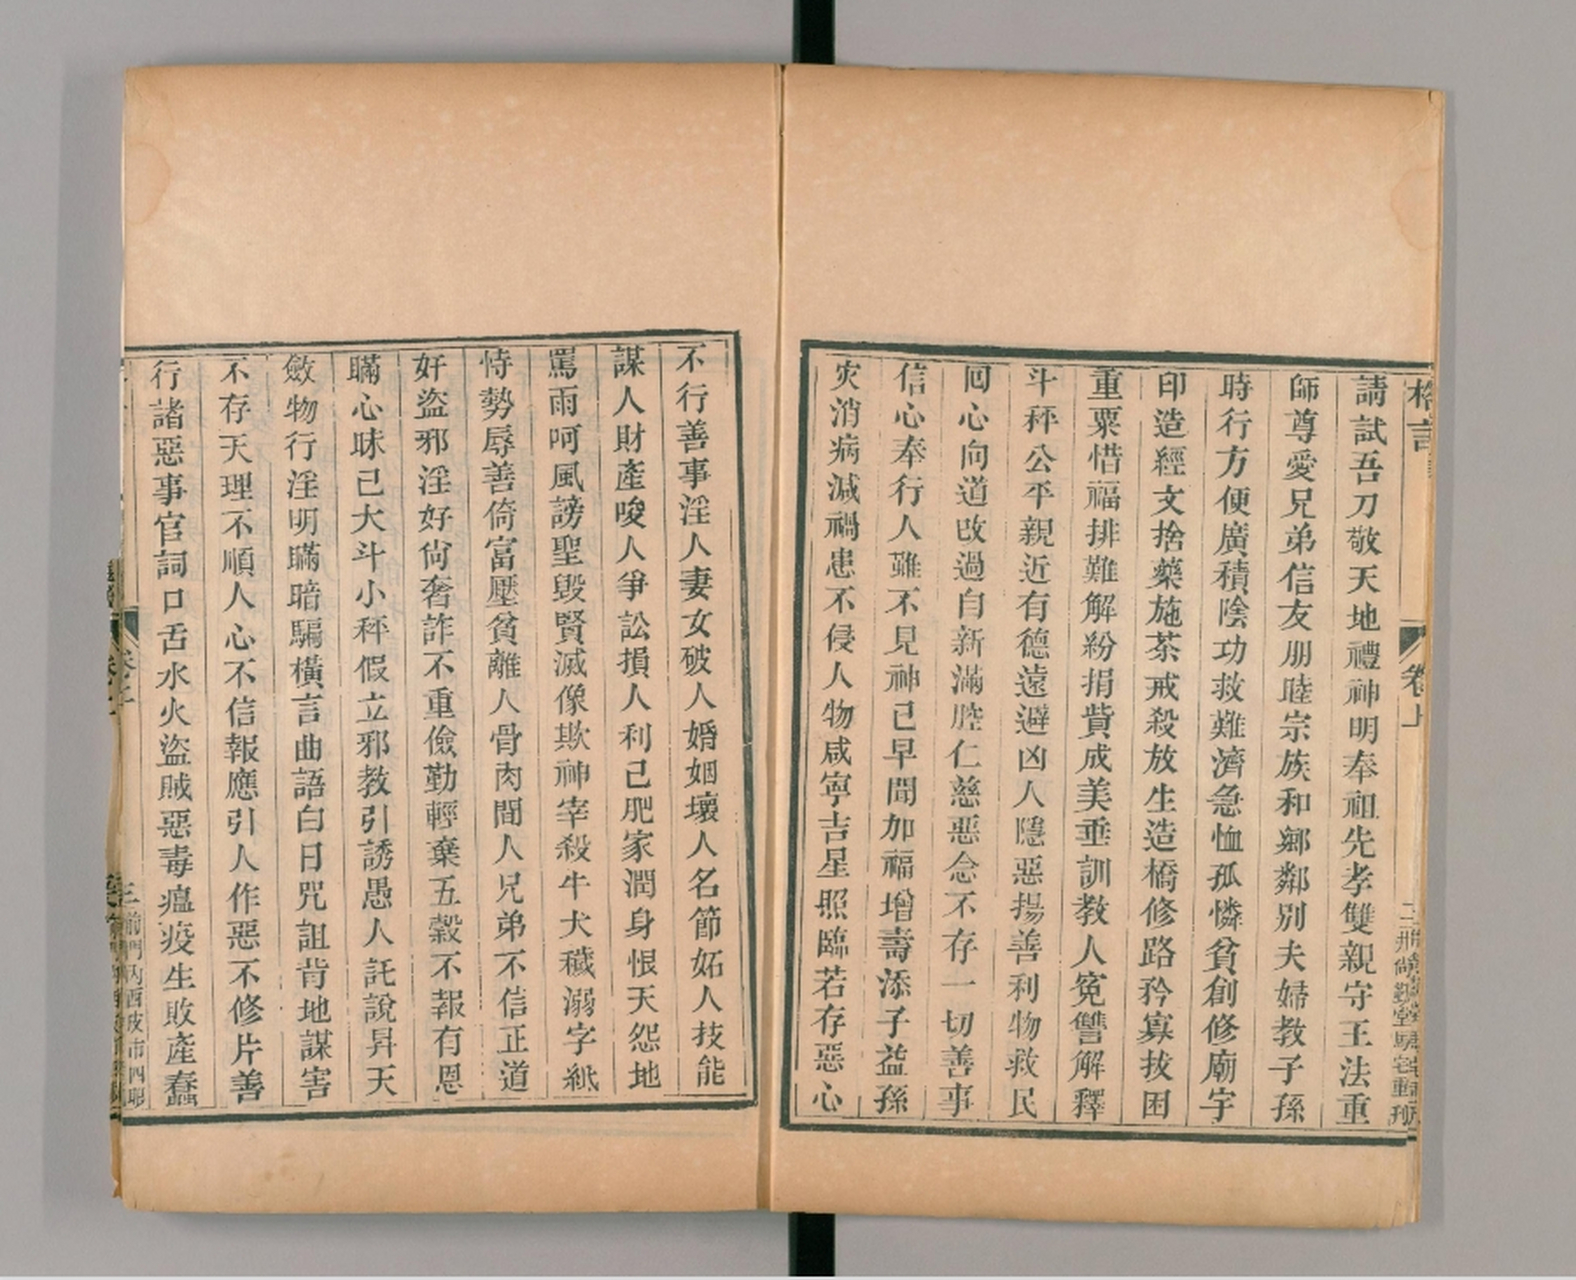 格言
卷上
請試吾刀敬天地禮神明奉祖先孝雙親守王法重
師尊愛兄弟信友朋睦宗族和鄉鄰別夫婦教子孫
時行方便廣積陰功救難濟急恤孤憐貧創修廟宇
印造經文捨藥施茶戒殺放生造橋修路矜寡拔困
重粟惜福排難解紛捐貲成美垂訓教人冤讐解釋
斗秤公平親近有德遠避凶人隱惡揚善利物救民
回心向道改過自新滿腔仁慈惡念不存一切善事
信心奉行人雖不見神已早聞加福增壽添子益孫
灾消病減禍患不侵人物咸寧吉星照臨若存惡心
不行善事淫人妻女破人婚姻壞人名節妬人技能
謀人財產唆人爭訟損人利己肥家潤身恨天怨地
罵雨呵風謗聖毀賢滅像欺神宰殺牛犬穢溺字紙
恃勢辱善倚富壓貧離人骨肉間人兄弟不信正道
奸盜邪淫好尙奢詐不重儉勤輕棄五穀不報有恩
瞞心昧己大斗小秤假立邪教引誘愚人託說昇天
斂物行淫明瞞暗騙橫言曲語白日咒詛背地謀害
不存天理不順人心不信報應引人作惡不修片善
行諸惡事官詞口舌水火盜賊惡毒瘟疫生敗產蠢
三
前門內西皮市四